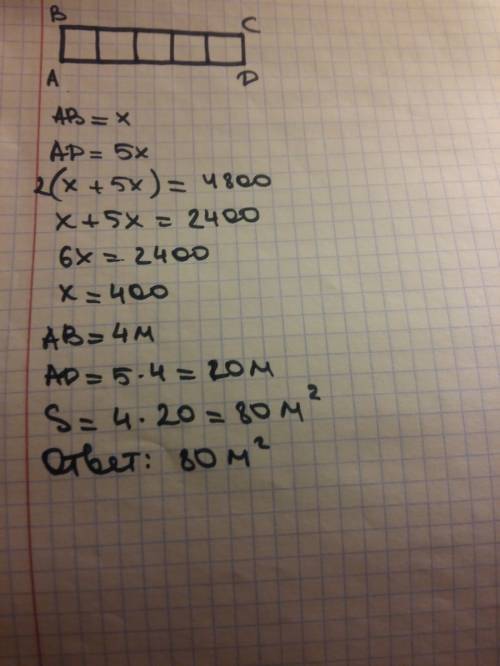 B C
A D
AB = x
AD = 5x
2(x + 5x) = 4800
x + 5x = 2400
6x = 2400
x = 400
AB = 4м
AD = 5 · 4 = 20м
S = 4 · 20 = 80 м²
Ответ: 80 м²